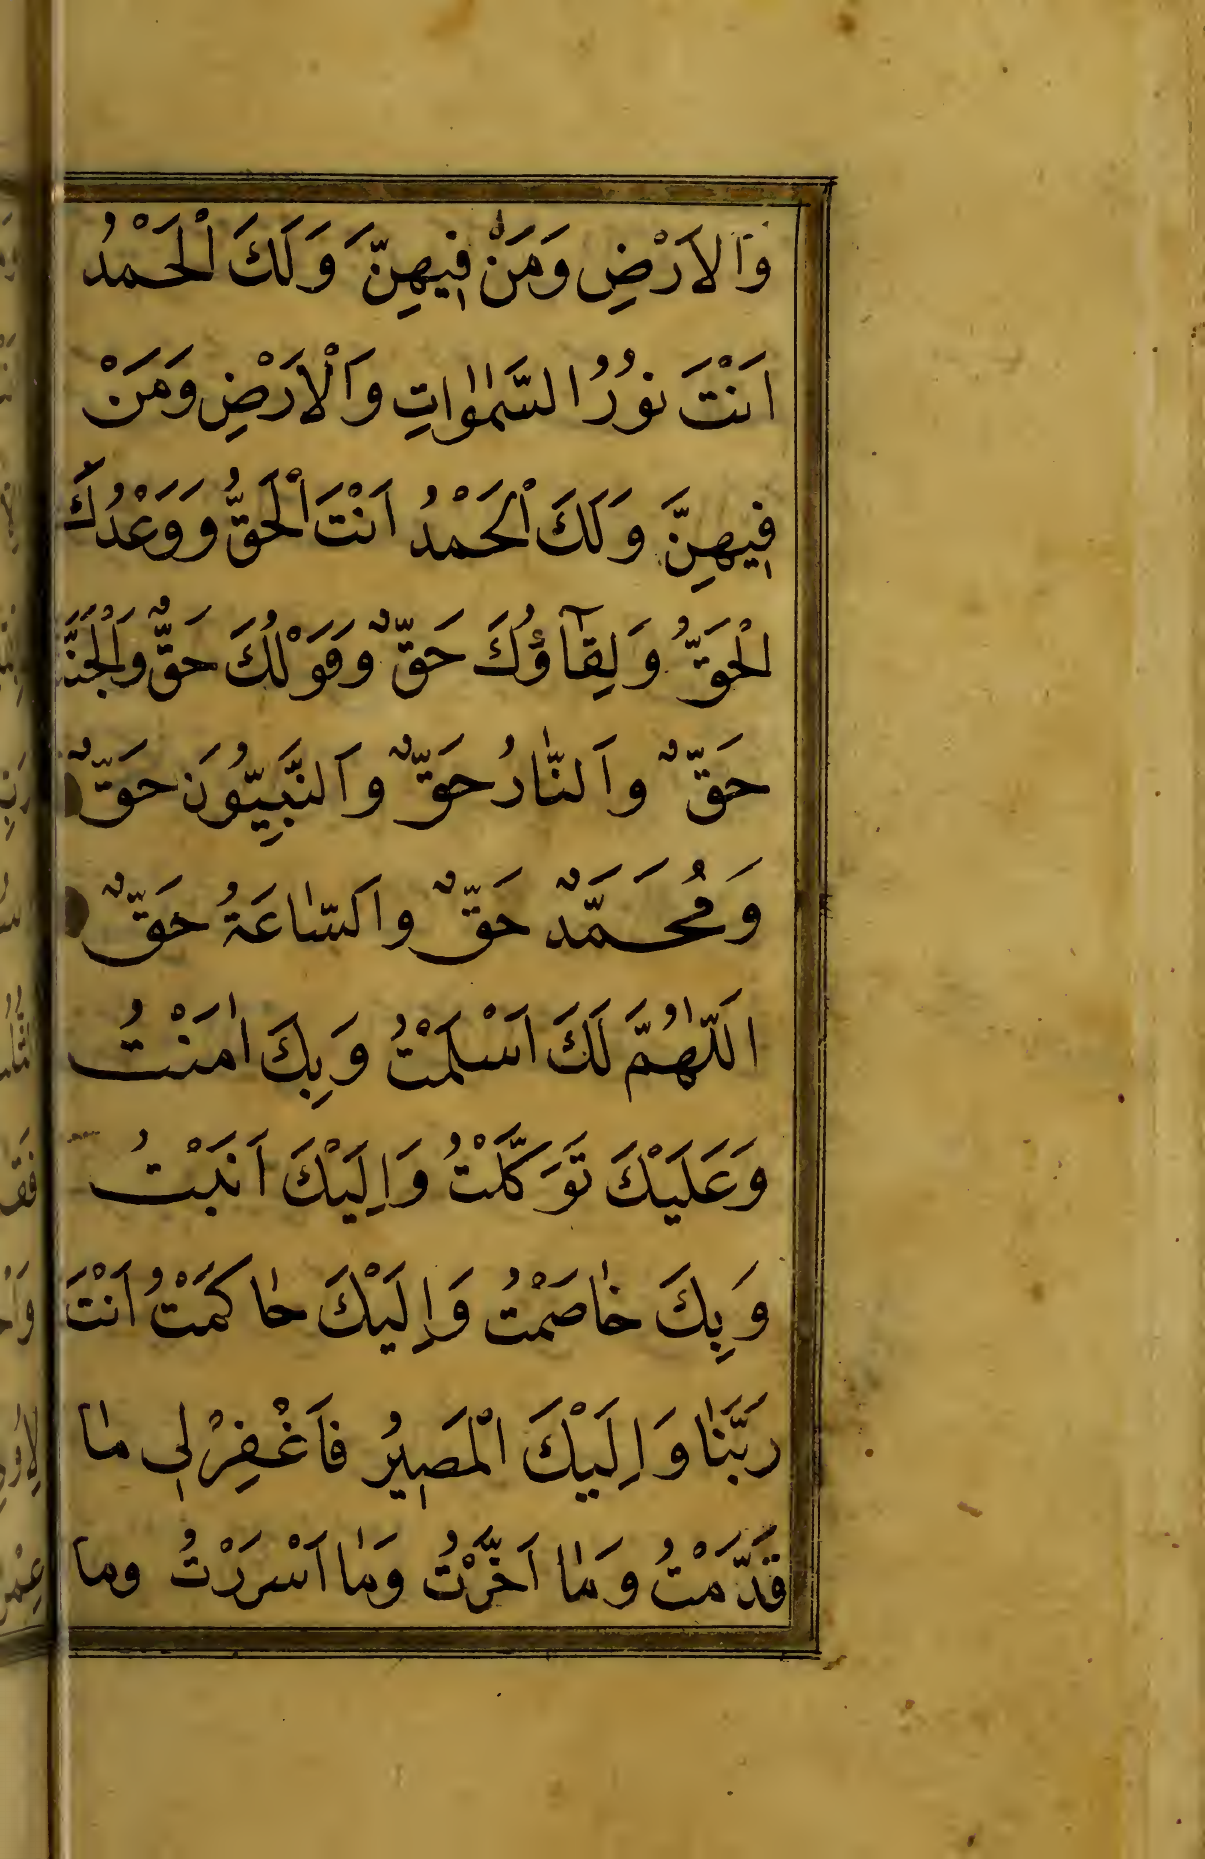 وَاَلاَرْضِ وَمَنْ فِيهِنَّ وَلَكَ الْحَمْدُ
اَنْتَ نوُرُ السَّمٰوٰاتِ وَاَلْاَرْضِ وَمَنْ
فِيهِنَّ وَلَكَ الْحَمْدُ اَنْتَ الْحَقُّ وَوَعْدُكَ
الْحَقُّ وَلِقَآؤُكَ حَقٌّ وَقَوْلُكَ حَقٌّ وَالْجَنَّة
حَقٌّ واَلنّٰارُ حَقٌّ واَلنَّبِيّوُنَ حَقٌّ
وَمُحَمَّدٌ حَقٌّ واَلسّٰاعَةُ حَقٌّ
اَللّٰهُمَّ لَكَ اَسْلَمْتُ وَبِكَ اٰمَنْتُ
وَعَلَيْكَ تَوَكَّلْتُ وَاِلَيْكَ اَنَبْتُ
وَبِكَ خٰاصَمْتُ وَاِلَيْكَ حٰاكَمْتُ اَنْتَ
رَبَّنٰا وَاِلَيْكَ الْمَصِيرُ فاَغْفِرْلِى مٰا
قَدَّمْتُ وَمٰا اَخَّرْتُ وَمٰا اَسْرَرْتُ وما